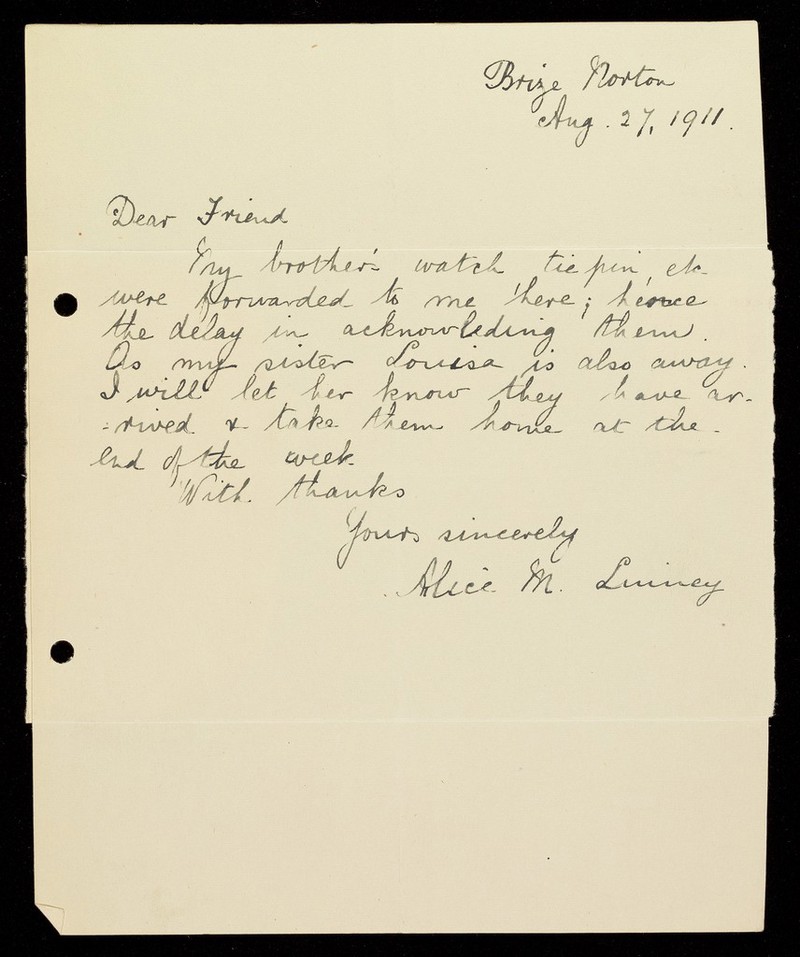 Brize Norton
Aug. 27, 1911.
Dear Friend
My brother's watch tie pin, etc
were forwarded to me here; hence
the delay in acknowleding them.
As my sister Louisa is also away.
I will let her know they have ar-
=rived & take them home at the
end of the week.
With thanks
Yours sincerely
Alice M.